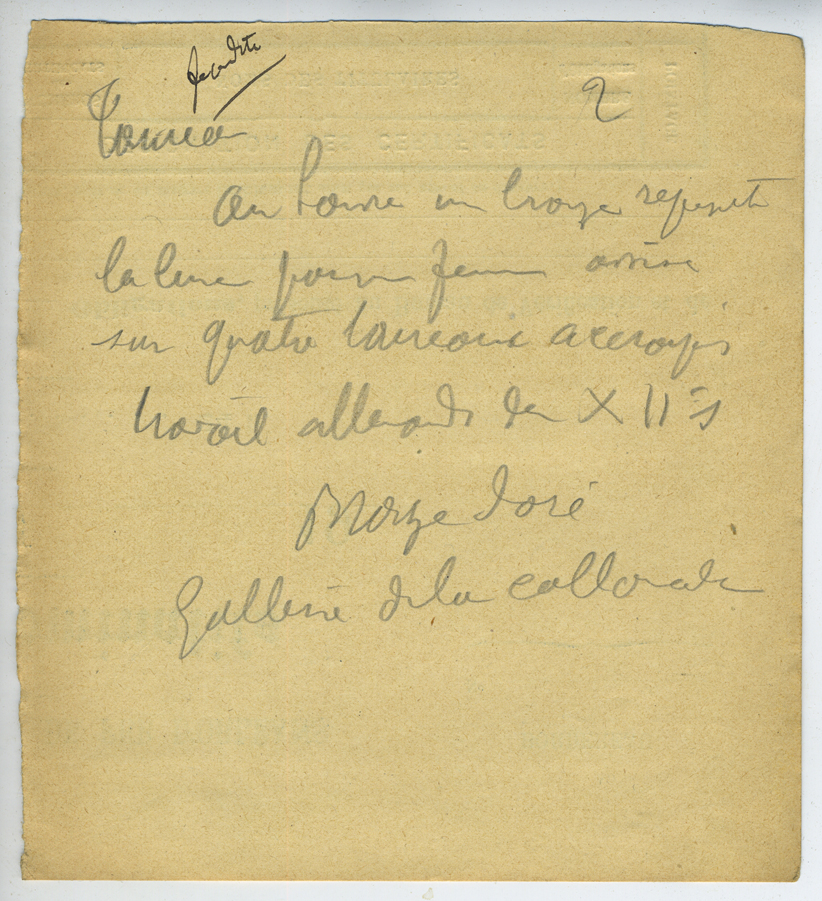 2
Taureau
Au Louvre un bronze represente
la lune jeune femme assise
sur quatre taureaux accroupis
travail allemand du XIIe s
Bronze doré
Gallerie de la collonade